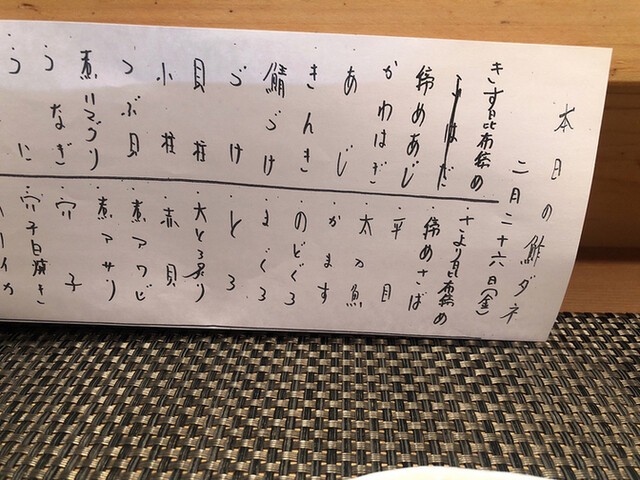 本日の鮨ダネ
二月二十六日(金)
きす昆布締め
こはだ
締めあじ
かわはぎ
あじ
きんき
鯖づけ
づけ
貝柱
小柱
つぶ貝
煮ハマグリ
うなぎ
さより昆布締め
締めさば
平目
太刀魚
かます
のどぐろ
まぐろ
とろ
大とろ炙り
赤貝
煮アワビ
煮アサリ
穴子
穴子白焼き